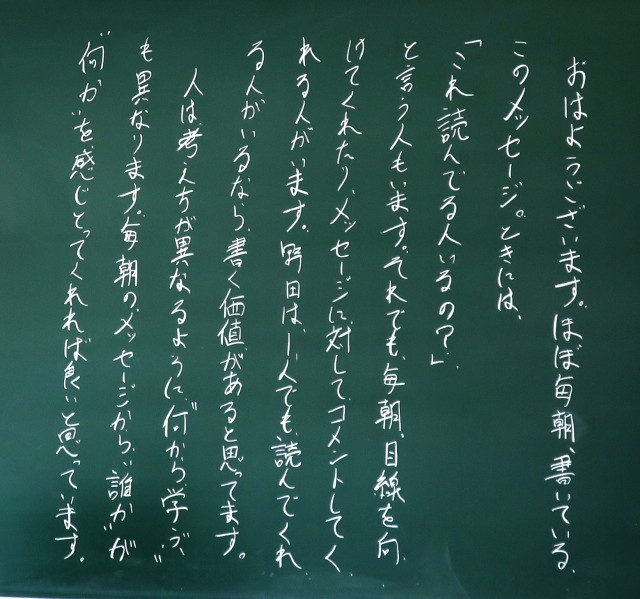 おはようございます。ほぼ毎朝、書いている、
このメッセージ。ときには、
「これ読んでる人いるの？」
と言う人もいます。それでも、毎朝、目線を向
けてくれたり、メッセージに対して、コメントしてく
れる人がいます。野田は、1人でも、読んでくれ
る人がいるなら、書く価値があると思ってます。
人は考え方が異なるように、“何から学ぶ”
も異なります。毎朝のメッセージから、“誰か”が
“何か”を感じとってくれれば良いと思っています。